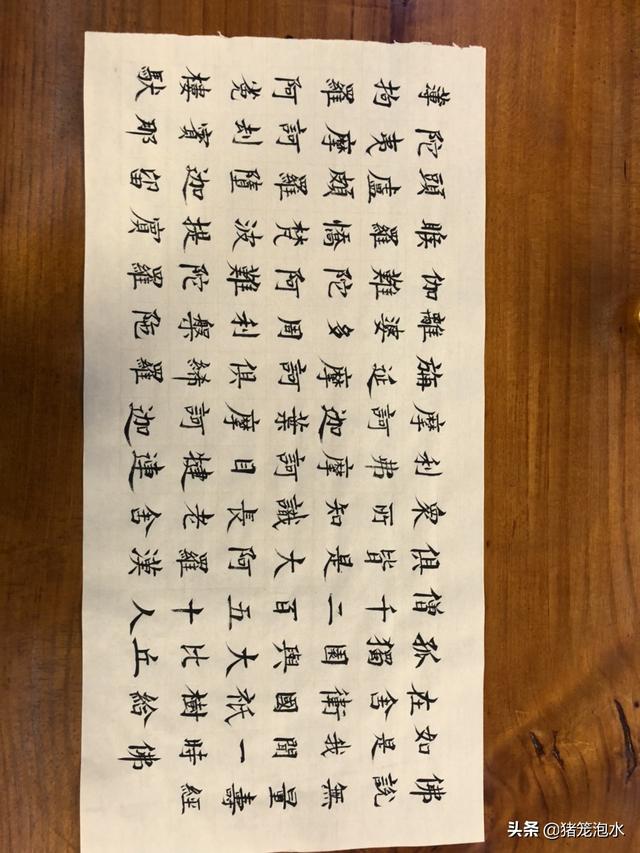 佛說無量壽經
如是我聞一時佛
在舍衛國祇樹給
孤獨園與大比丘
僧千二百五十人
俱皆是大阿羅漢
眾所知識長老舍
利弗摩訶目犍連
摩訶迦葉摩訶迦
旃延摩訶俱絺羅
離婆多周利槃陁
伽難陀阿難陀羅
睺羅憍梵波提賓
頭盧頗羅墮迦留
陀夷摩訶刦賓那
薄拘羅阿㝹樓馱
头条 @猪笼泡水